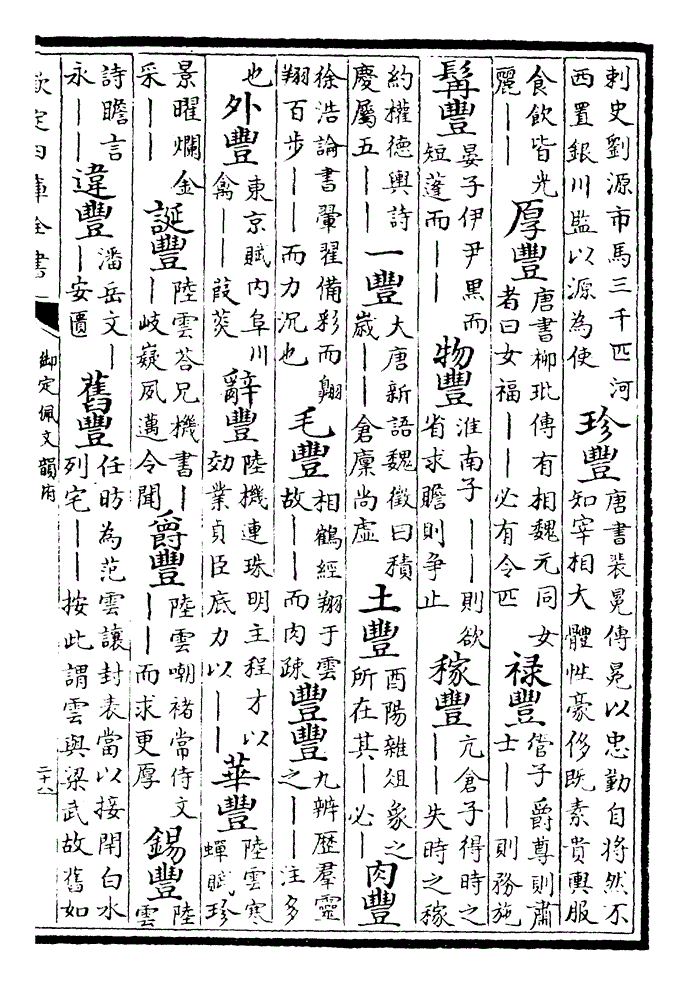 刺史劉源市馬三千匹河
西置銀川監以源為使
珍豐
唐書裴冕傳冕以忠勤自將然不
知宰相大體性豪侈既素貴輿服
食飲皆光
麗丨丨
厚豐
唐書柳玭傳有相魏元同女
者曰女福丨丨必有令匹
祿豐
管子爵尊則肅
士丨丨則務施
髯豐
晏子伊尹黒而
短蓬而丨丨
物豐
淮南子丨丨則欲
省求贍則争止
稼豐
亢倉子得時之
丨丨失時之稼
約權德輿詩
慶屬五丨丨
一豐
大唐新語魏徴曰積
歲丨丨倉廩尚虛
土豐
酉陽雜俎象之
所在其丨必丨
肉豐
徐浩論書翬翟備彩而翺
翔百步丨丨而力沉也
毛豐
相鶴經翔于雲
故丨丨而肉疎
豐豐
九辨歷羣靈
之丨丨注多
也
外豐
東京賦内阜川
禽丨丨葭菼
辭豐
陸機連珠明主程才以
効業貞臣底力以丨丨
華豐
陸雲寒
蟬賦珍
景曜爛金
采丨丨
誕豐
陸雲荅兄機書丨
丨岐嶷夙邁令聞
爵豐
陸雲嘲褚常侍文
丨丨而求更厚
錫豐
陸
雲
詩瞻言
永丨丨
違豐
潘岳文丨
丨安匱
舊豐
任昉為范雲讓封表當以接閈白水
列宅丨丨按此謂雲與梁武故舊如
欽定四庫全書
御定佩文韻府
二十八